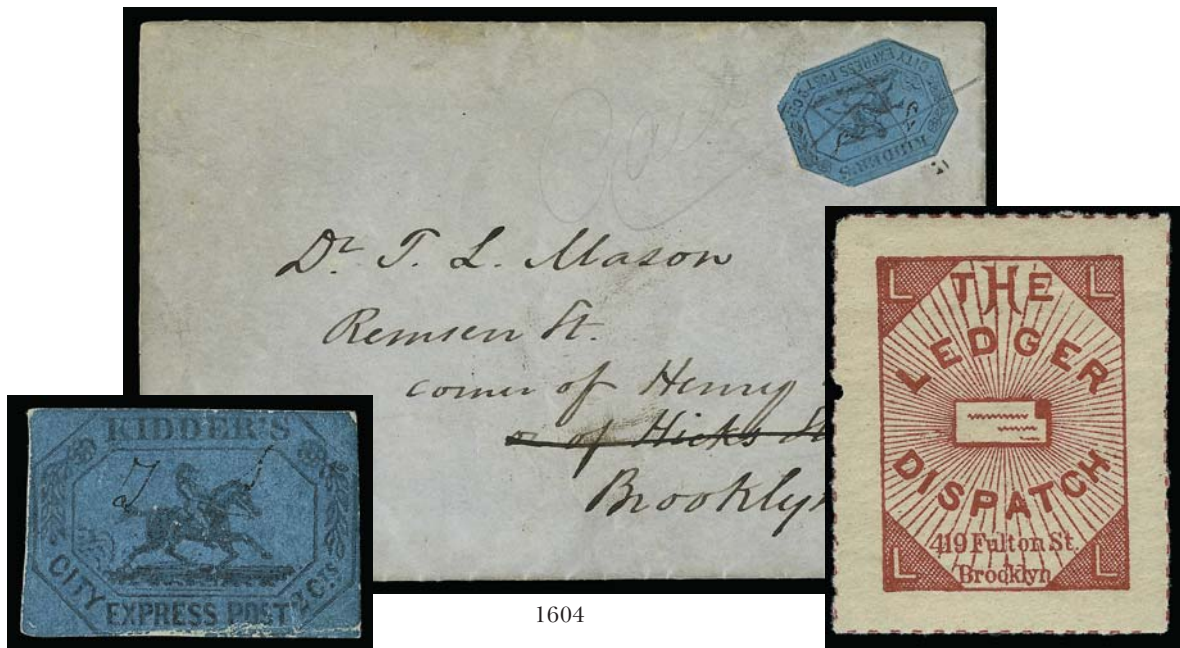 KIDDER'S
CITY EXPRESS POST 2 Cts
Dr. T. L. Mason
Remsen St.
corner of Henry
of Hicks St
Brooklyn
KIDDER'S
CITY EXPRESS POST 2 Cts
L THE L
LEDGER
DISPATCH
419 Fulton St.
L Brooklyn L
1604